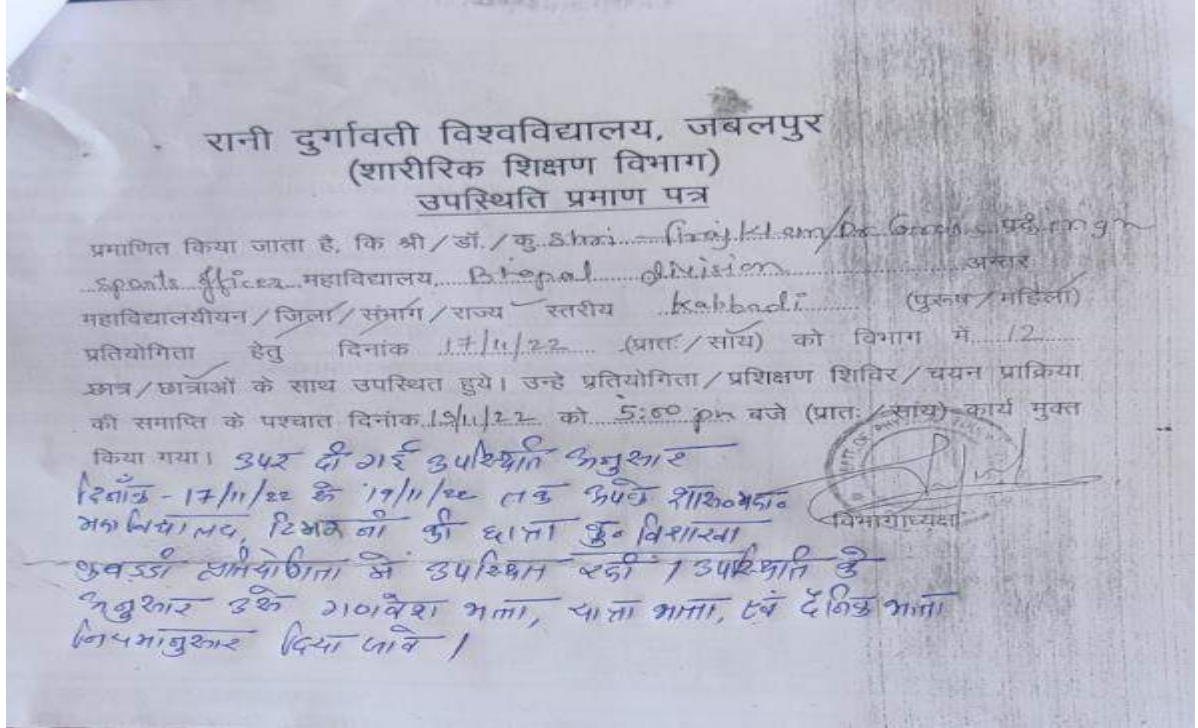 रानी दुर्गावती विश्वविद्यालय, जबलपुर
(शारीरिक शिक्षण विभाग)
उपस्थिति प्रमाण पत्र
प्रमाणित किया जाता है, कि श्री/डॉ./कु. Shri
Sports Officer महाविद्यालय, Bhopal division अन्तर
महाविद्यालयीयन/जिला/संभाग/राज्य स्तरीय Kabbadi (पुरूष/महिला)
प्रतियोगिता हेतु दिनांक 17/11/22 (प्रातः/सॉय) को विभाग में 12
छात्र/छात्राओं के साथ उपस्थित हुये। उन्हे प्रतियोगिता/प्रशिक्षण शिविर/चयन प्राक्रिया
की समाप्ति के पश्चात दिनांक 19/11/22 को 5:00 pm बजे (प्रातः/सांय) कार्य मुक्त
किया गया। उपर दी गई उपस्थिति अनुसार
दिनाँक - 17/11/22 से 19/11/22 तक
महाविद्यालय, टिमरनी की छात्रा कु० विशाखा
विभागाध्यक्ष
कबड्डी प्रतियोगिता में उपस्थित रही। उपस्थिति के
अनुसार उसे गणवेश भत्ता, यात्रा भत्ता, एवं दैनिक भत्ता
नियमानुसार दिया जावे।